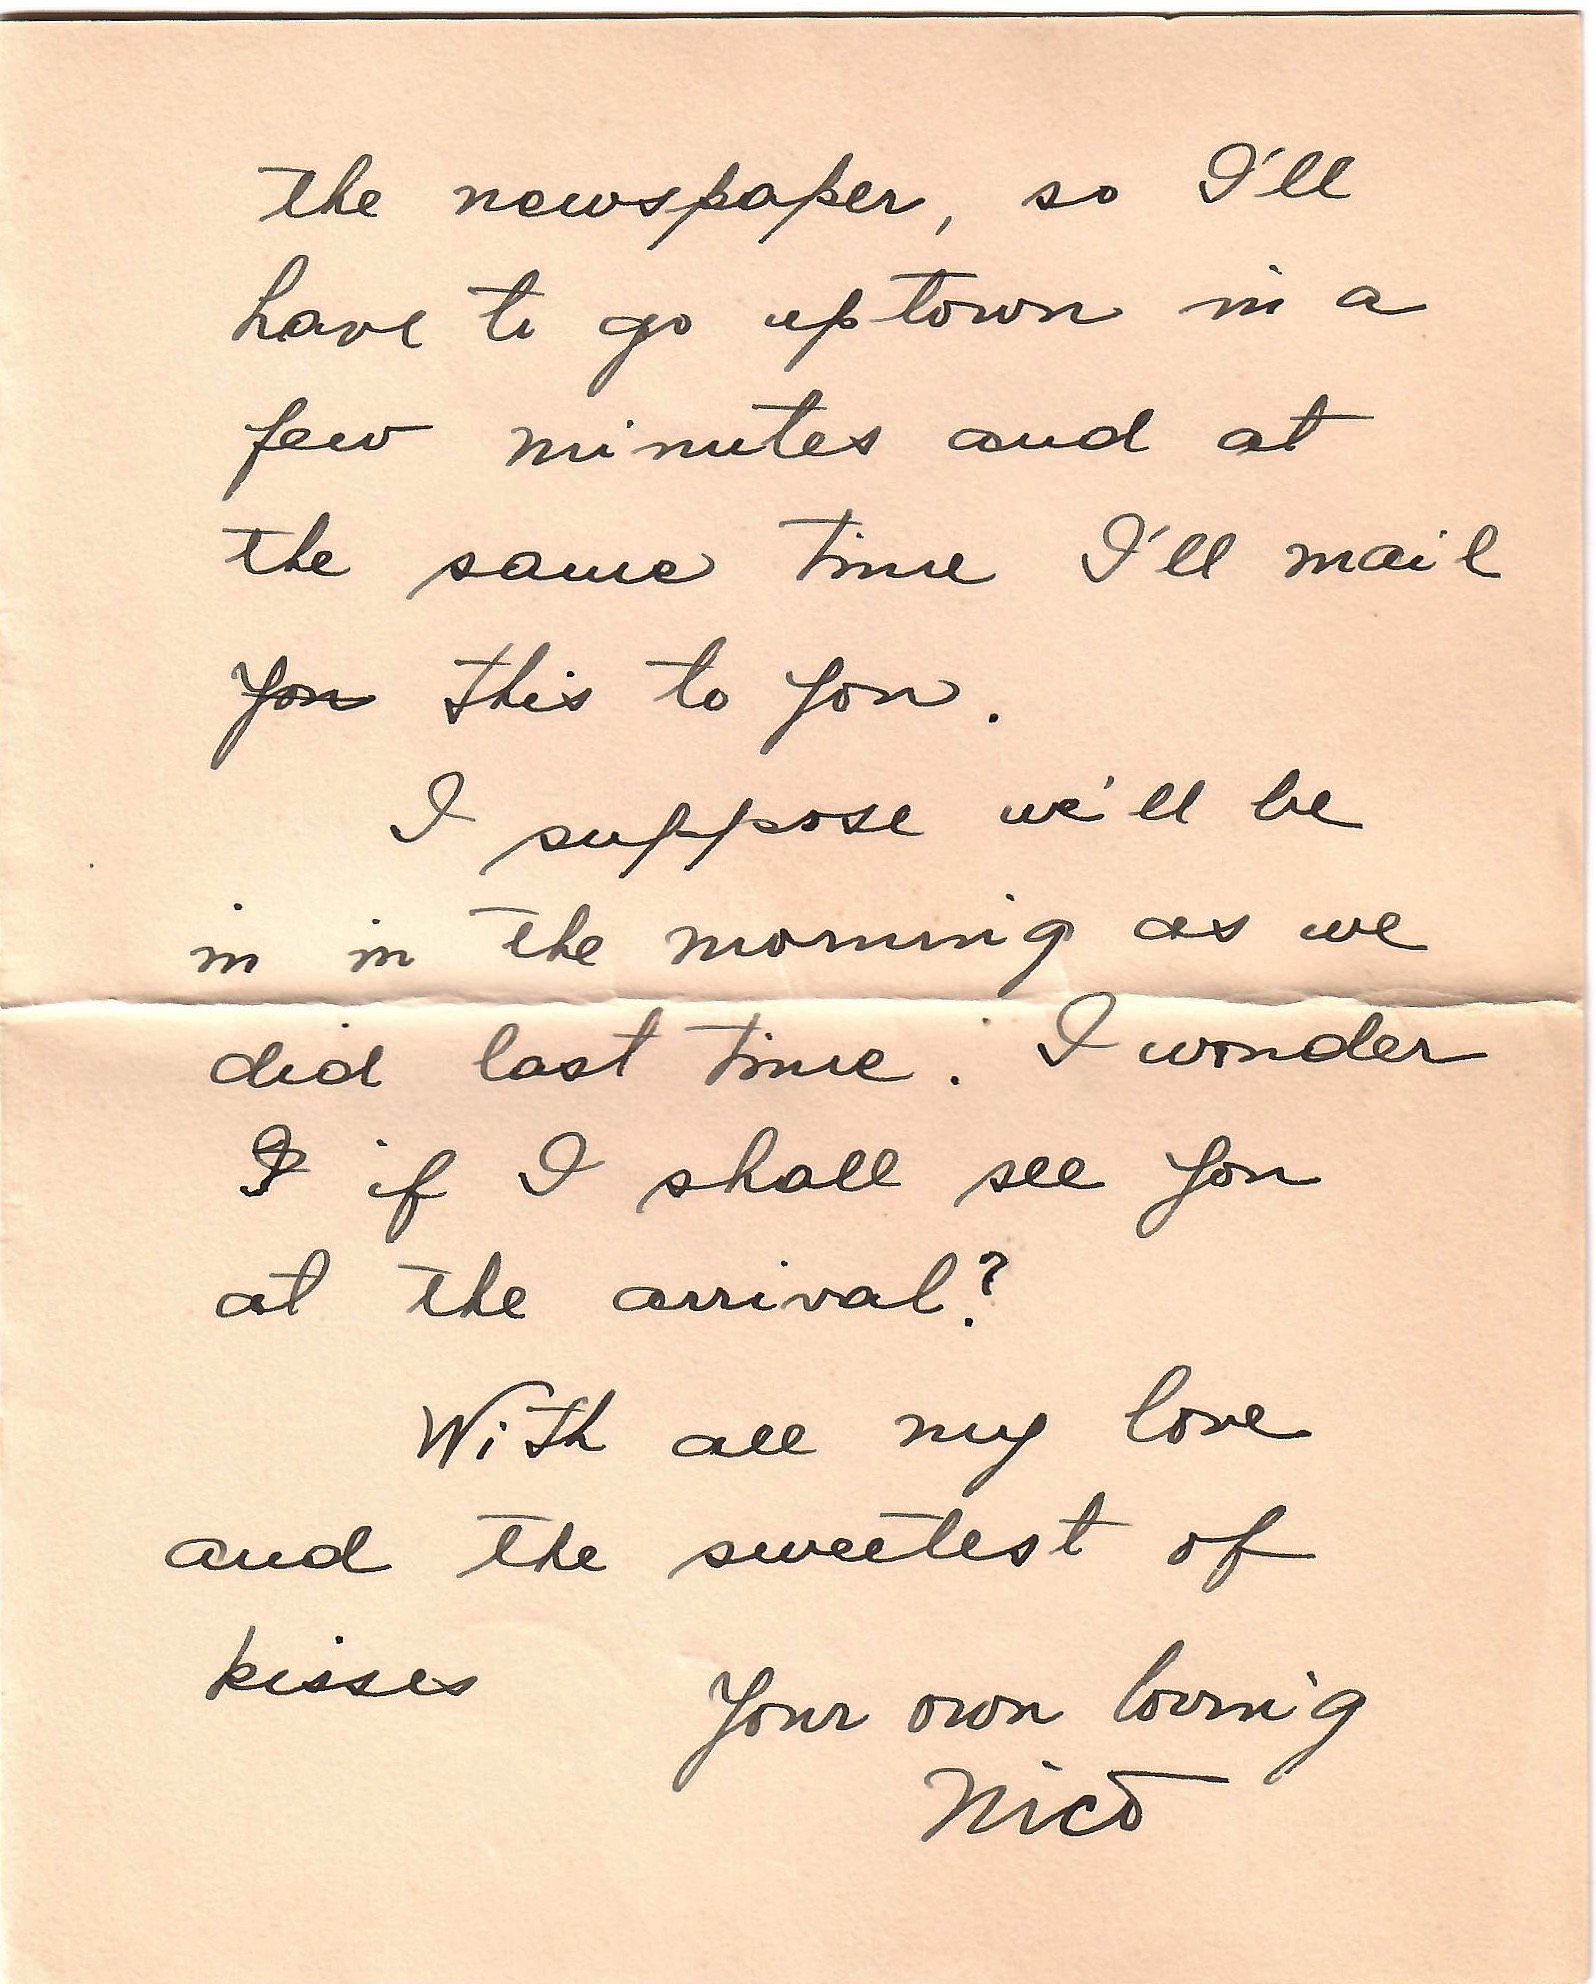 the newspaper, so I'll
have to go uptown in a
few minutes and at
the same time I'll mail
you this to you.
I suppose we'll be
in in the morning as we
did last time. I wonder
I if I shall see you
at the arrival?
With all my love
and the sweetest of
kisses Your own loving
Nico